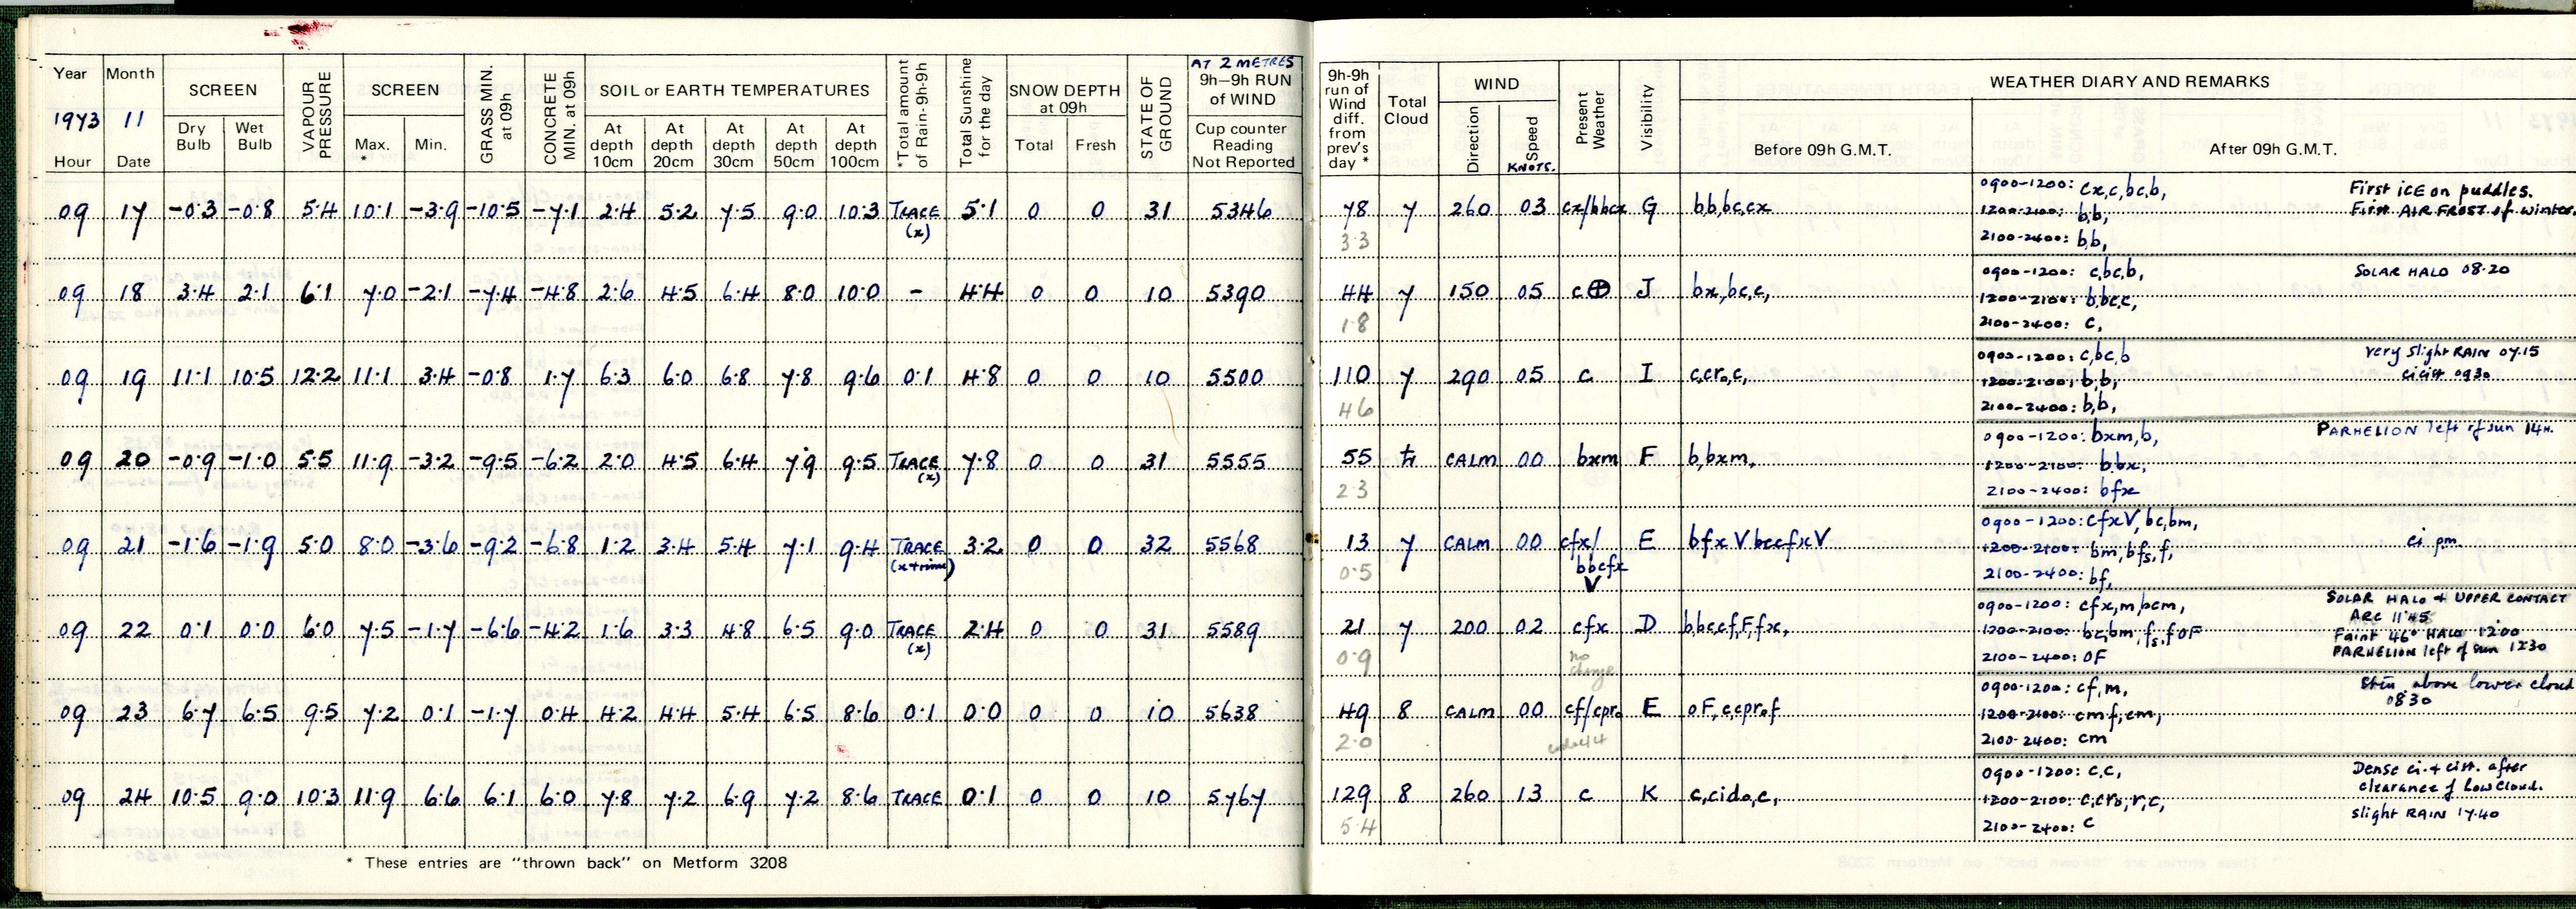 Year Month SCREEN VAPOUR PRESSURE SCREEN GRASS MIN. at 09h CONCRETE MIN. at 09h SOIL or EARTH TEMPERATURES *Total amount of Rain-9h-9h Total Sunshine for the day SNOW DEPTH at 09h STATE OF GROUND AT 2 METRES 9h–9h RUN of WIND
1973 11
Hour Date Dry Bulb Wet Bulb Max. * Min. At depth 10cm At depth 20cm At depth 30cm At depth 50cm At depth 100cm Total Fresh Cup counter Reading Not Reported
09 17 -0.3 -0.8 5.4 10.1 -3.9 -10.5 -7.1 2.4 5.2 7.5 9.0 10.3 TRACE (x) 5.1 0 0 31 5346
09 18 3.4 2.1 6.1 7.0 -2.1 -7.4 -4.8 2.6 4.5 6.4 8.0 10.0 - 4.4 0 0 10 5390
09 19 11.1 10.5 12.2 11.1 3.4 -0.8 1.7 6.3 6.0 6.8 7.8 9.6 0.1 4.8 0 0 10 5500
09 20 -0.9 -1.0 5.5 11.9 -3.2 -9.5 -6.2 2.0 4.5 6.4 7.9 9.5 TRACE (x) 7.8 0 0 31 5555
09 21 -1.6 -1.9 5.0 8.0 -3.6 -9.2 -6.8 1.2 3.4 5.4 7.1 9.4 TRACE (x+rime) 3.2 0 0 32 5568
09 22 0.1 0.0 6.0 7.5 -1.7 -6.6 -4.2 1.6 3.3 4.8 6.5 9.0 TRACE (x) 2.4 0 0 31 5589
09 23 6.7 6.5 9.5 7.2 0.1 -1.7 0.4 4.2 4.4 5.4 6.5 8.6 0.1 0.0 0 0 10 5638
09 24 10.5 9.0 10.3 11.9 6.6 6.1 6.0 7.8 7.2 6.9 7.2 8.6 TRACE 0.1 0 0 10 5767
* These entries are "thrown back" on Metform 3208
9h-9h run of Wind diff. from prev's day * Total Cloud WIND Direction Speed KNOTS. Present Weather Visibility WEATHER DIARY AND REMARKS
Before 09h G.M.T. After 09h G.M.T.
0900-1200: cx,c,bc,b, First ICE on puddles.
78 7 260 03 cx/bbcx G b,b,bc,cx 1200-2100: b,b, First AIR FROST of winter.
3.3 2100-2400: b,b,
0900-1200: c,bc,b, SOLAR HALO 08.20
44 7 150 05 c⊕ J bx,bc,c, 1200-2100: b,bc,c,
1.8 2100-2400: c,
0900-1200: c,bc,b very slight RAIN 07.15
110 7 290 05 c I c,cr₀,c, 1200-2100: b,b, cicist 0930
4.6 2100-2400: b,b,
0900-1200: bxm,b, PARHELION left of sun 14H.
55 CALM 00 bxm F b,bxm, 1200-2100: b,bx,
2.3 2100-2400: bfx
0900-1200: cfxV, bc,bm,
13 7 CALM 00 cfx/bbcfxV E bfxVbccfxV 1200-2100: bm,bfs,f, ci pm
0.5 2100-2400: bf,
0900-1200: cfx,m,bcm, SOLAR HALO + UPPER CONTACT ARC 11.45
21 7 200 02 cfx D b,bc,cf,F,fx, 1200-2100: bc,bm,fs,fOF Faint 46° HALO 12.00
0.9 no change 2100-2400: OF PARHELION left of sun 1230
0900-1200: cf,m, above lower cloud 0830
49 8 CALM 00 cf/cpr₀ E oF,c,cpr₀f 1200-2100: cmf,cm,
2.0 2100-2400: cm
0900-1200: c,c, Dense ci.+ cist. after clearance of low cloud.
129 8 260 13 c K c,cid₀,c, 1200-2100: c,cr₀,r,c, slight RAIN 17.40
5.4 2100-2400: c